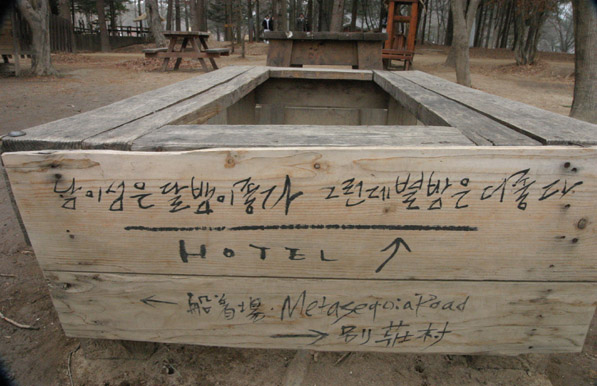 남이섬은 달밤이 좋지 그런데 별밤은 더 좋다
HOTEL ↑
← 船着場. Metasequoia Road
→ 別荘村